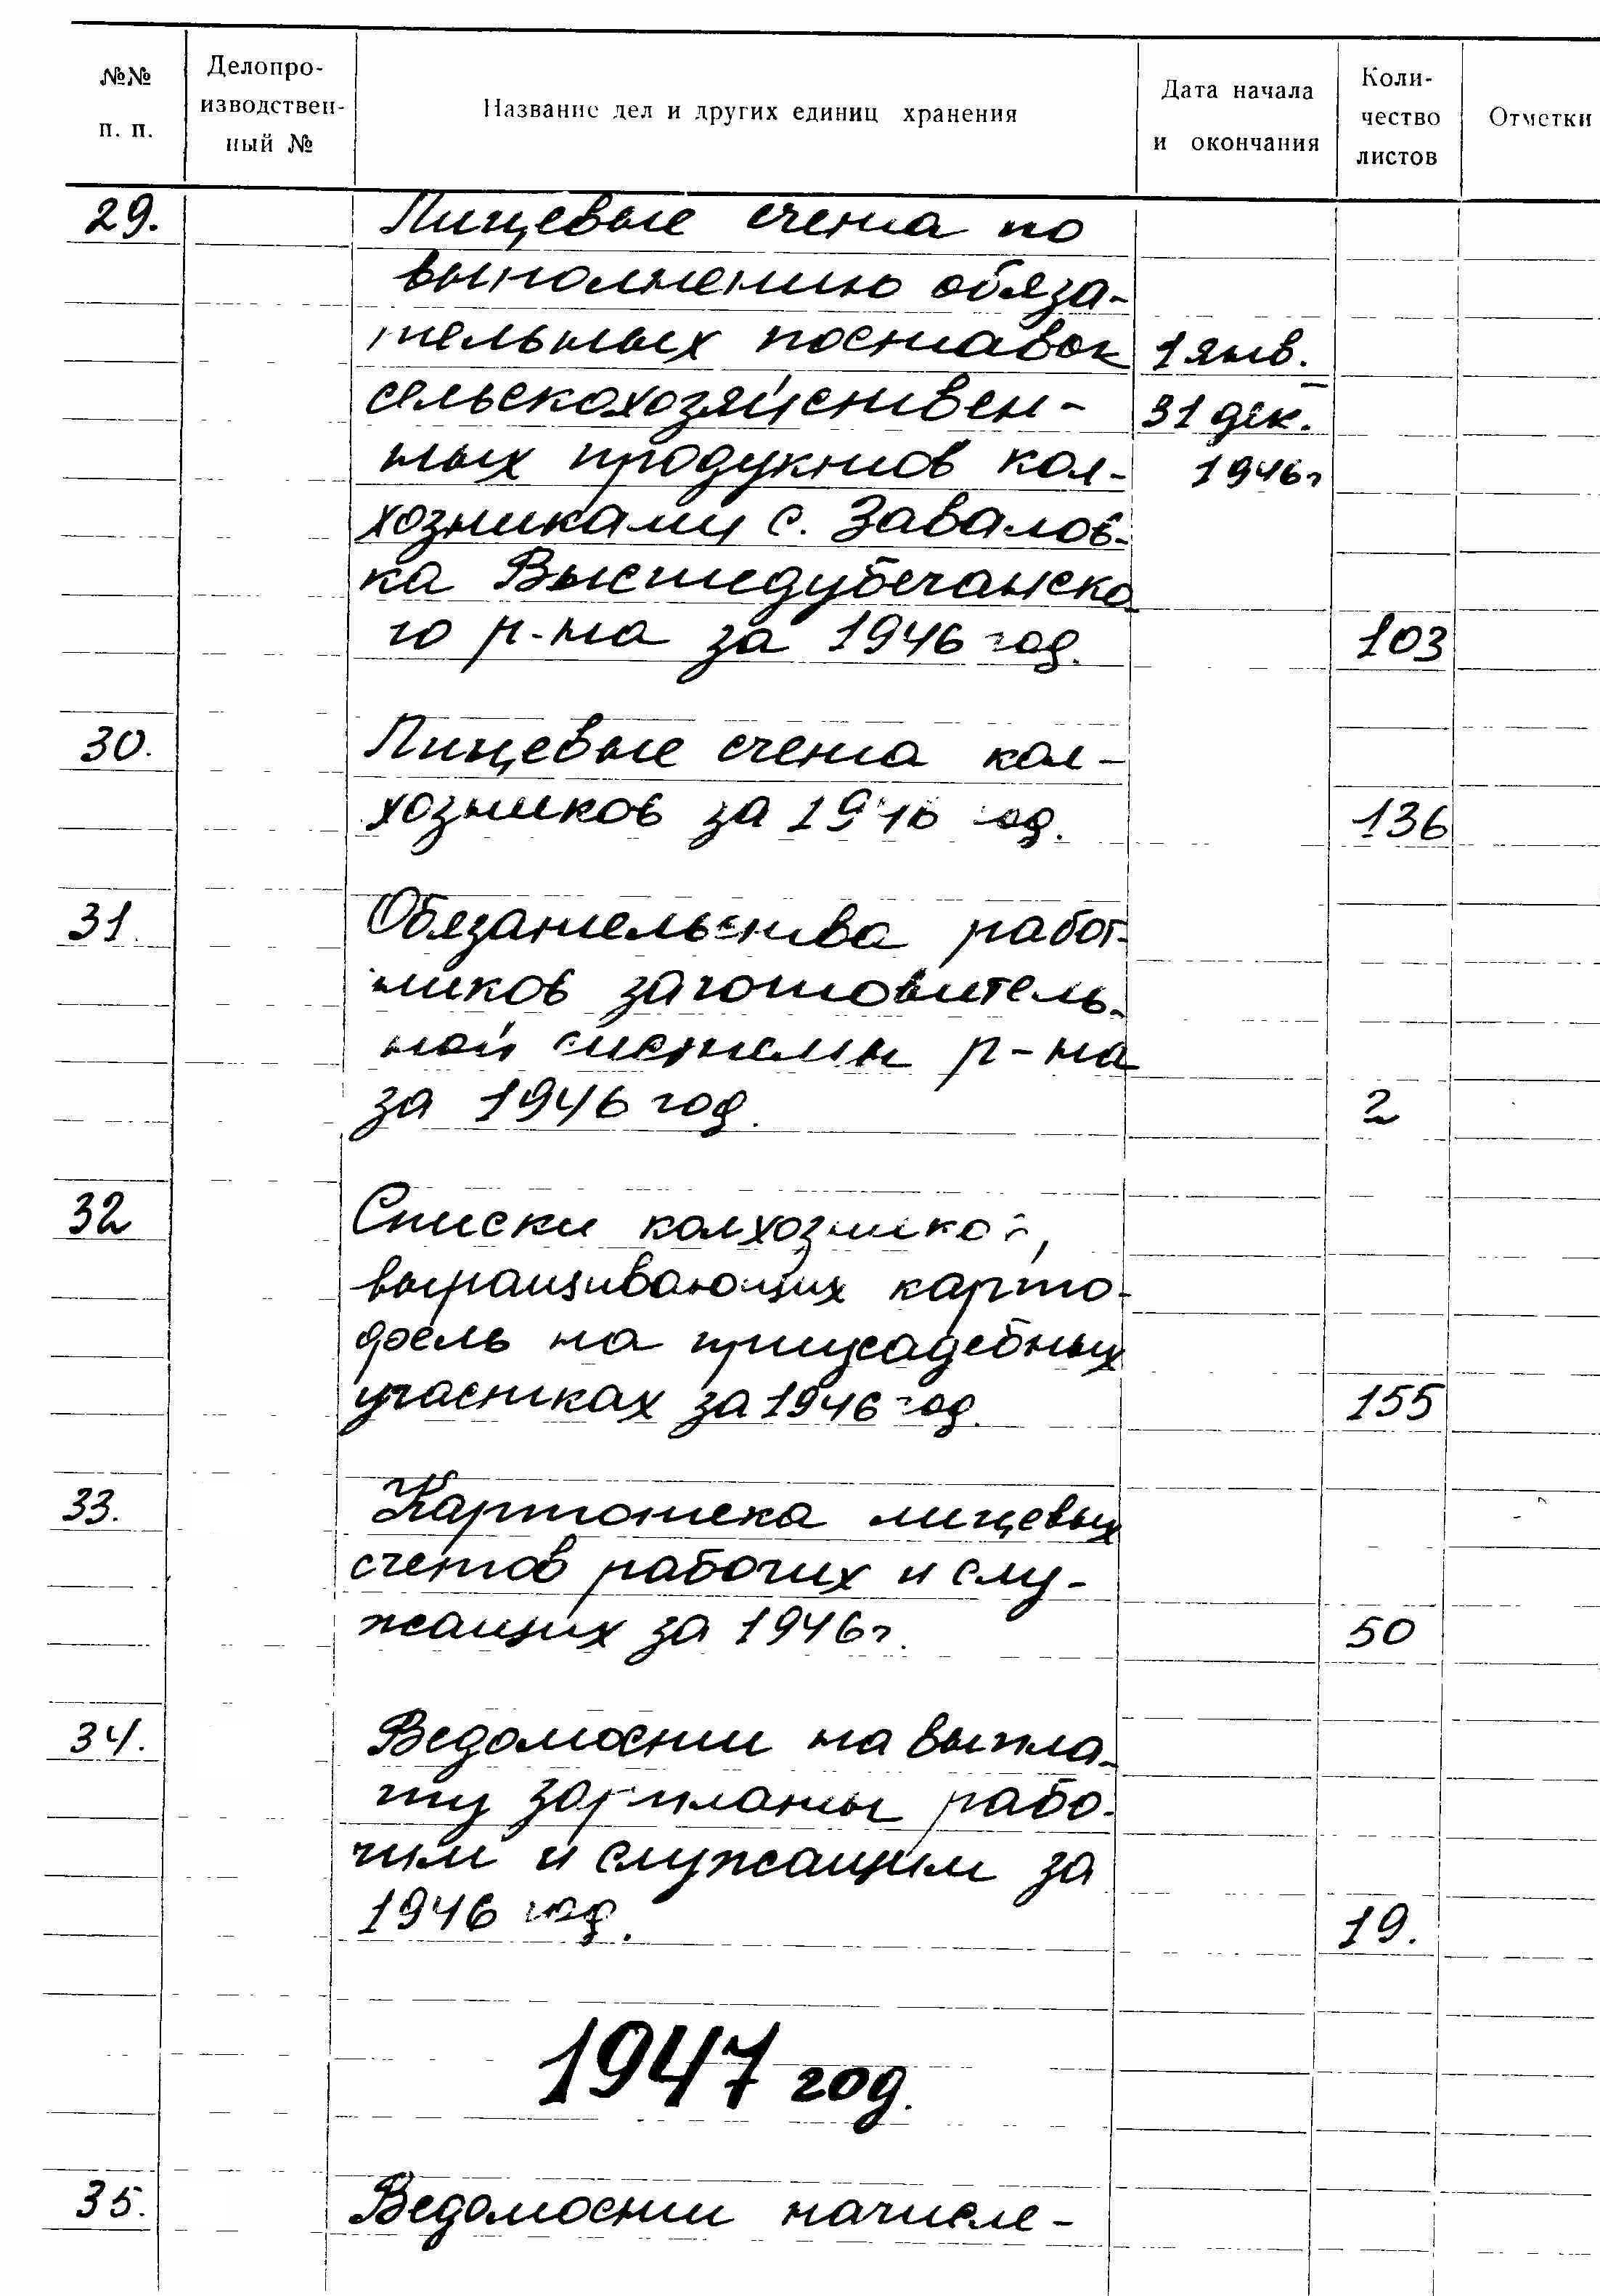 №№ п. п.
Делопро-
изводствен-
ный №
Название дел и других единиц хранения
Дата начала
и окончания
Коли-
чество
листов
Отметки
29. Лицевые счета по
выполнению обяза-
тельных поставок 1 янв. –
сельскохозяйствен- 31 дек.
ных продуктов кол- 1946г
хозниками с. Завалов-
ка Высшедубечанско
го р-на за 1946 год. 103
30. Лицевые счета кол-
хозников за 1946 год. 136
31. Обязательства работ-
ников заготовитель-
ной системы р-на
за 1946 год. 2
32 Списки колхозников,
выращивающих карто-
фель на приусадебных
участках за 1946 год. 155
33. Картотека лицевых
счетов рабочих и слу-
жащих за 1946г. 50
34. Ведомости на выпла-
ту зарплаты рабо-
чим и служащим за
1946 год. 19.
1947 год.
35. Ведомости начисле-